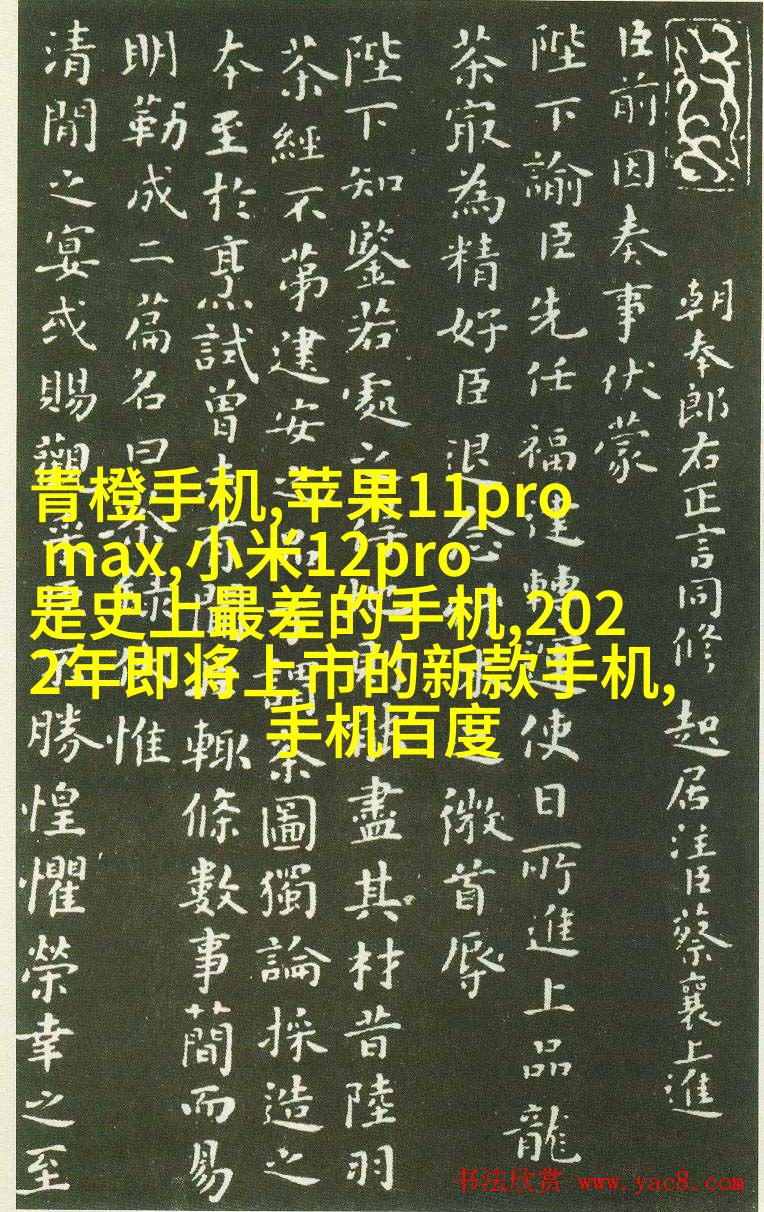 朝奉郎右正言同修起居注臣蔡襄上進
臣前因奏事伏蒙
陛下諭臣先任福建轉運使日所進上品龍
茶冣為精好臣退念之微首辱
陛下知鑒若處之得盡其材昔陸羽
茶經不第建安之品謂茶圖獨論採造之
本至於烹試曾未有聞輒條數事簡而易
明勒成二篇名曰茶錄伏惟
清閒之宴或賜觀采臣不勝惶懼榮幸之至
青橙手机,苹果11pro
max,小米12pro
是史上最差的手机,202
2年即将上市的新款手机,
手机百度
书法欣赏 www.yac8.com